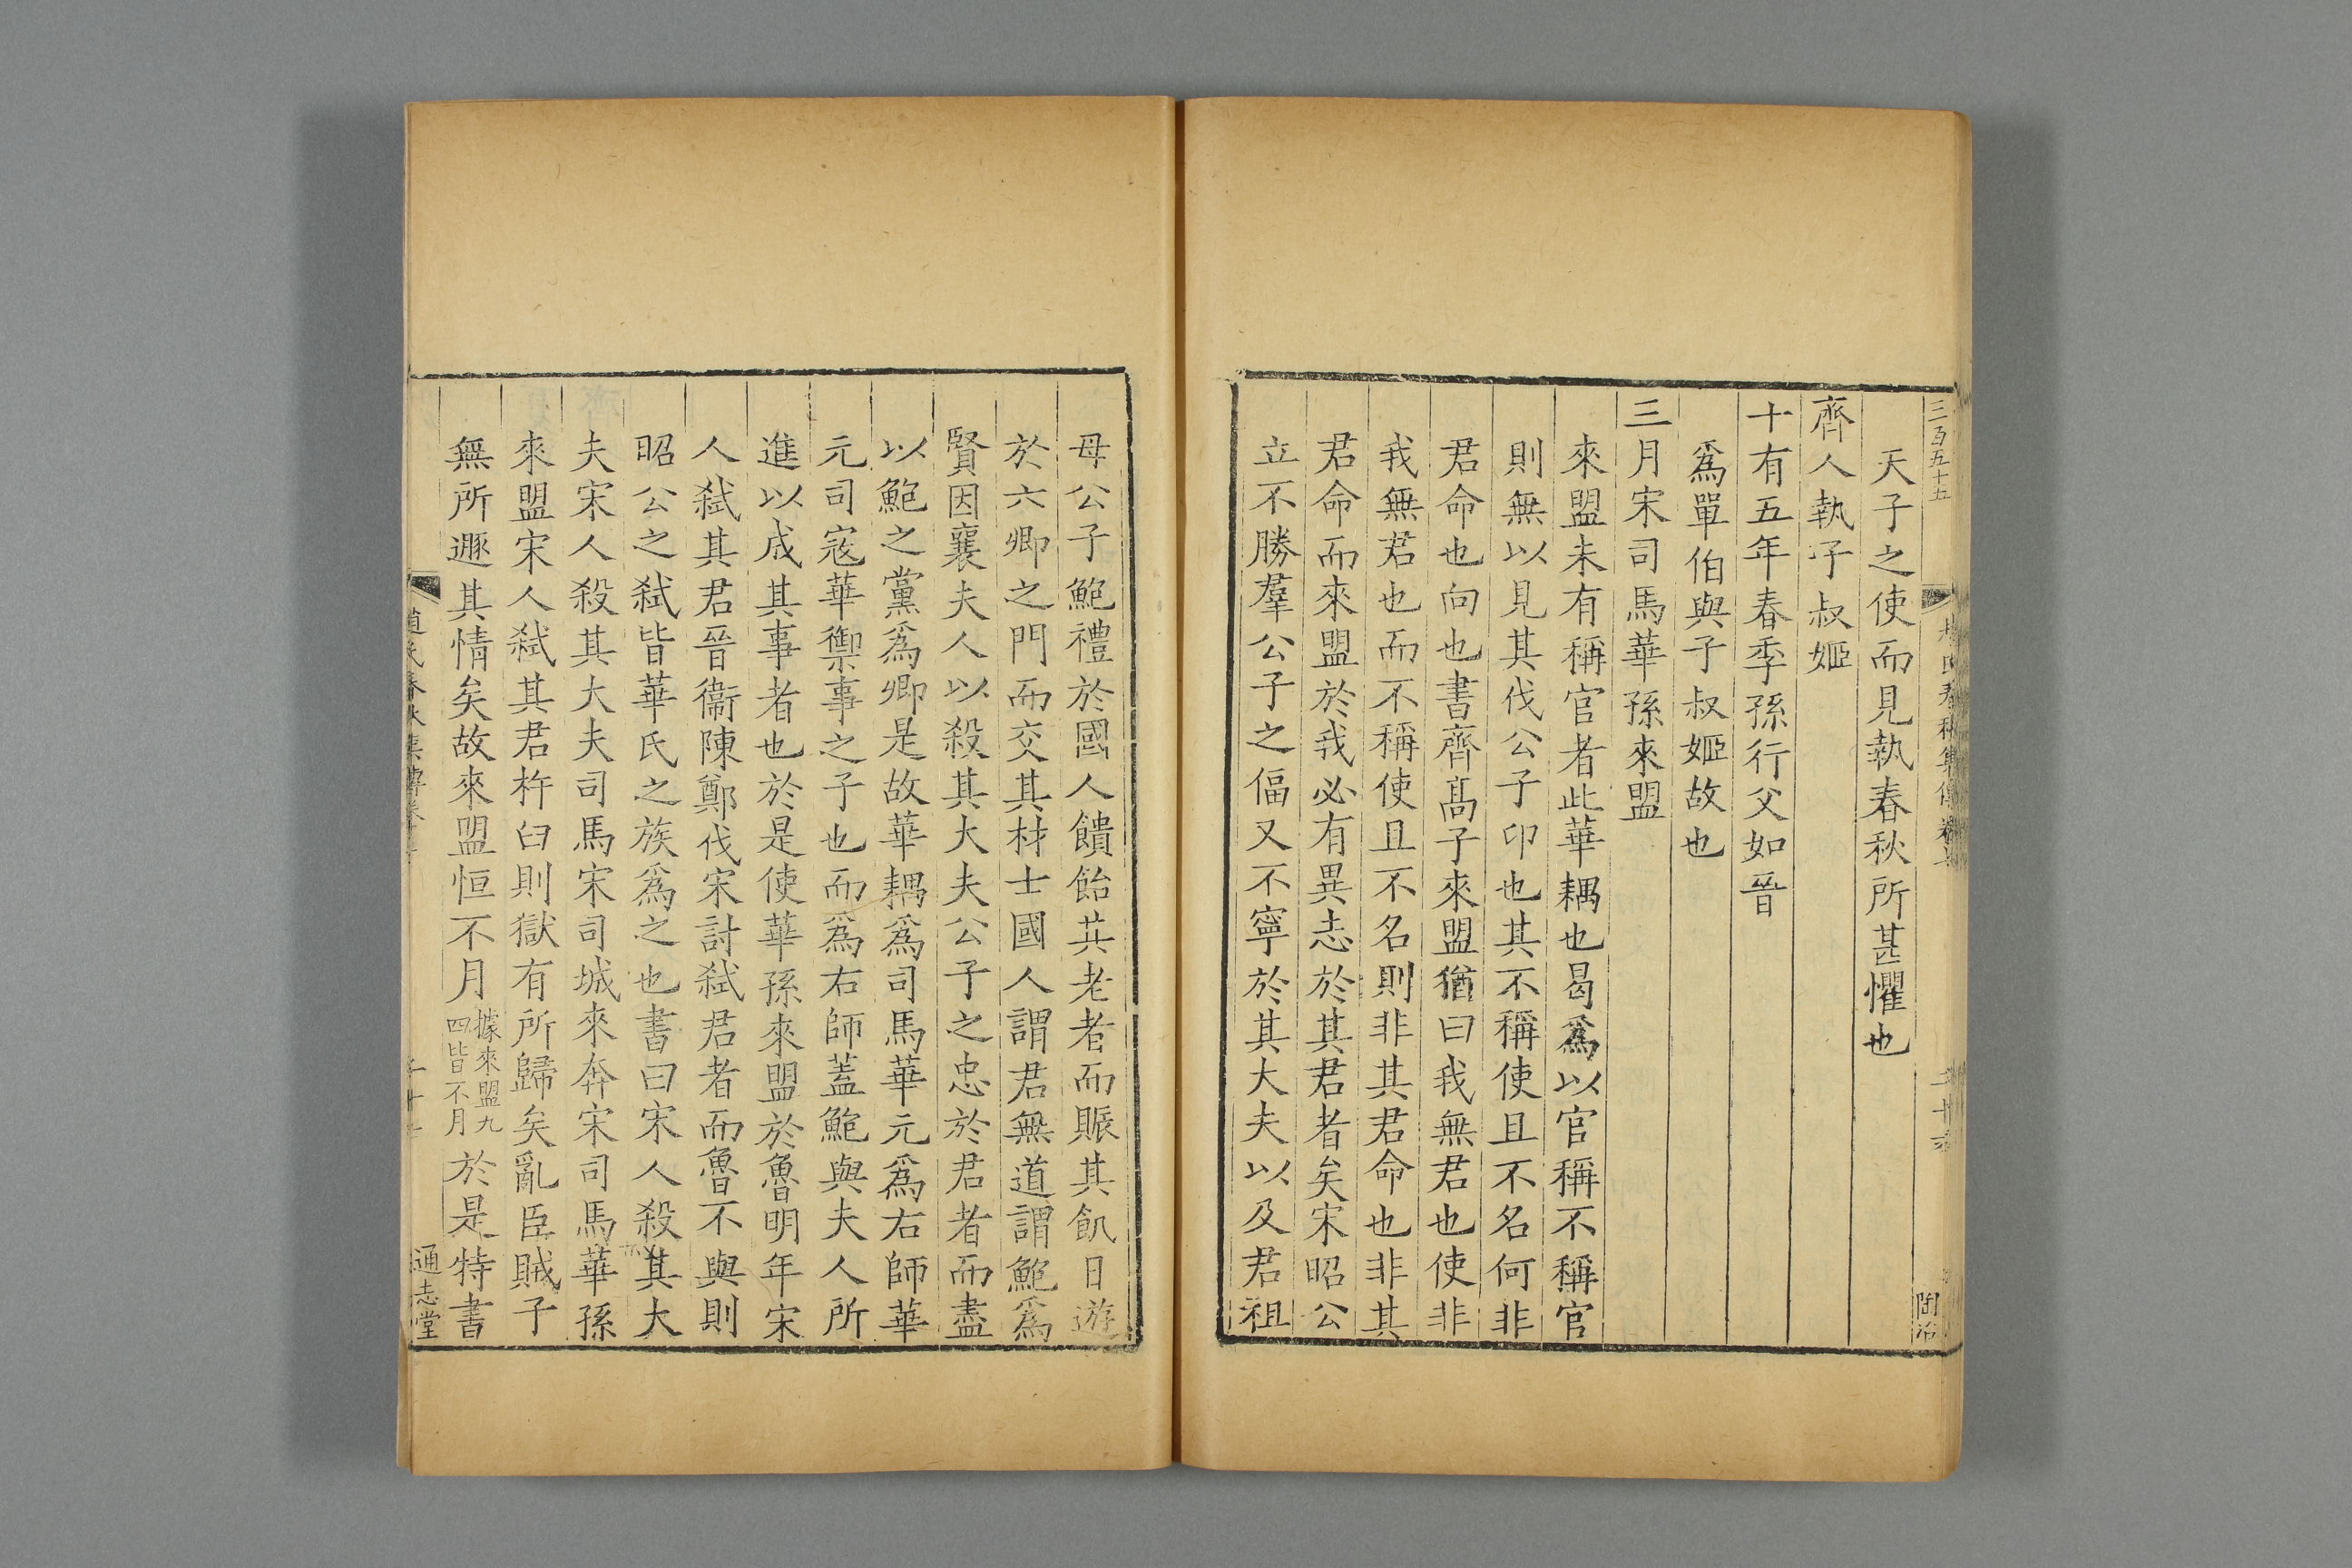 三百五十五
天子之使而見執春秋所甚懼也
齊人執子叔姬
十有五年春季孫行父如晉
爲單伯與子叔姬故也
三月宋司馬華孫來盟
來盟未有稱官者此華耦也曷爲以官稱不稱官
則無以見其伐公子卬也其不稱使且不名何非
君命也向也書齊髙子來盟猶曰我無君也使非
我無君也而不稱使且不名則非其君命也非其
君命而來盟於我必有異志於其君者矣宋昭公
立不勝羣公子之偪又不寧於其大夫以及君祖
母公子鮑禮於國人饋飴其老者而賑其飢日遊
於六卿之門而交其材士國人謂君無道謂鮑爲
賢因襄夫人以殺其大夫公子之忠於君者而盡
以鮑之黨爲卿是故華耦爲司馬華元爲右師華
元司寇華禦事之子也而爲右師蓋鮑與夫人所
進以成其事者也於是使華孫來盟於魯明年宋
人弑其君晉衞陳鄭伐宋討弑君者而魯不與則
昭公之弑皆華氏之族爲之也書曰宋人殺其大
夫宋人殺其大夫司馬宋司城來奔宋司馬華孫
來盟宋人弑其君杵臼則獄有所歸矣亂臣賊子
無所遯其情矣故來盟恒不月據來盟九四皆不月於是特書
通志堂